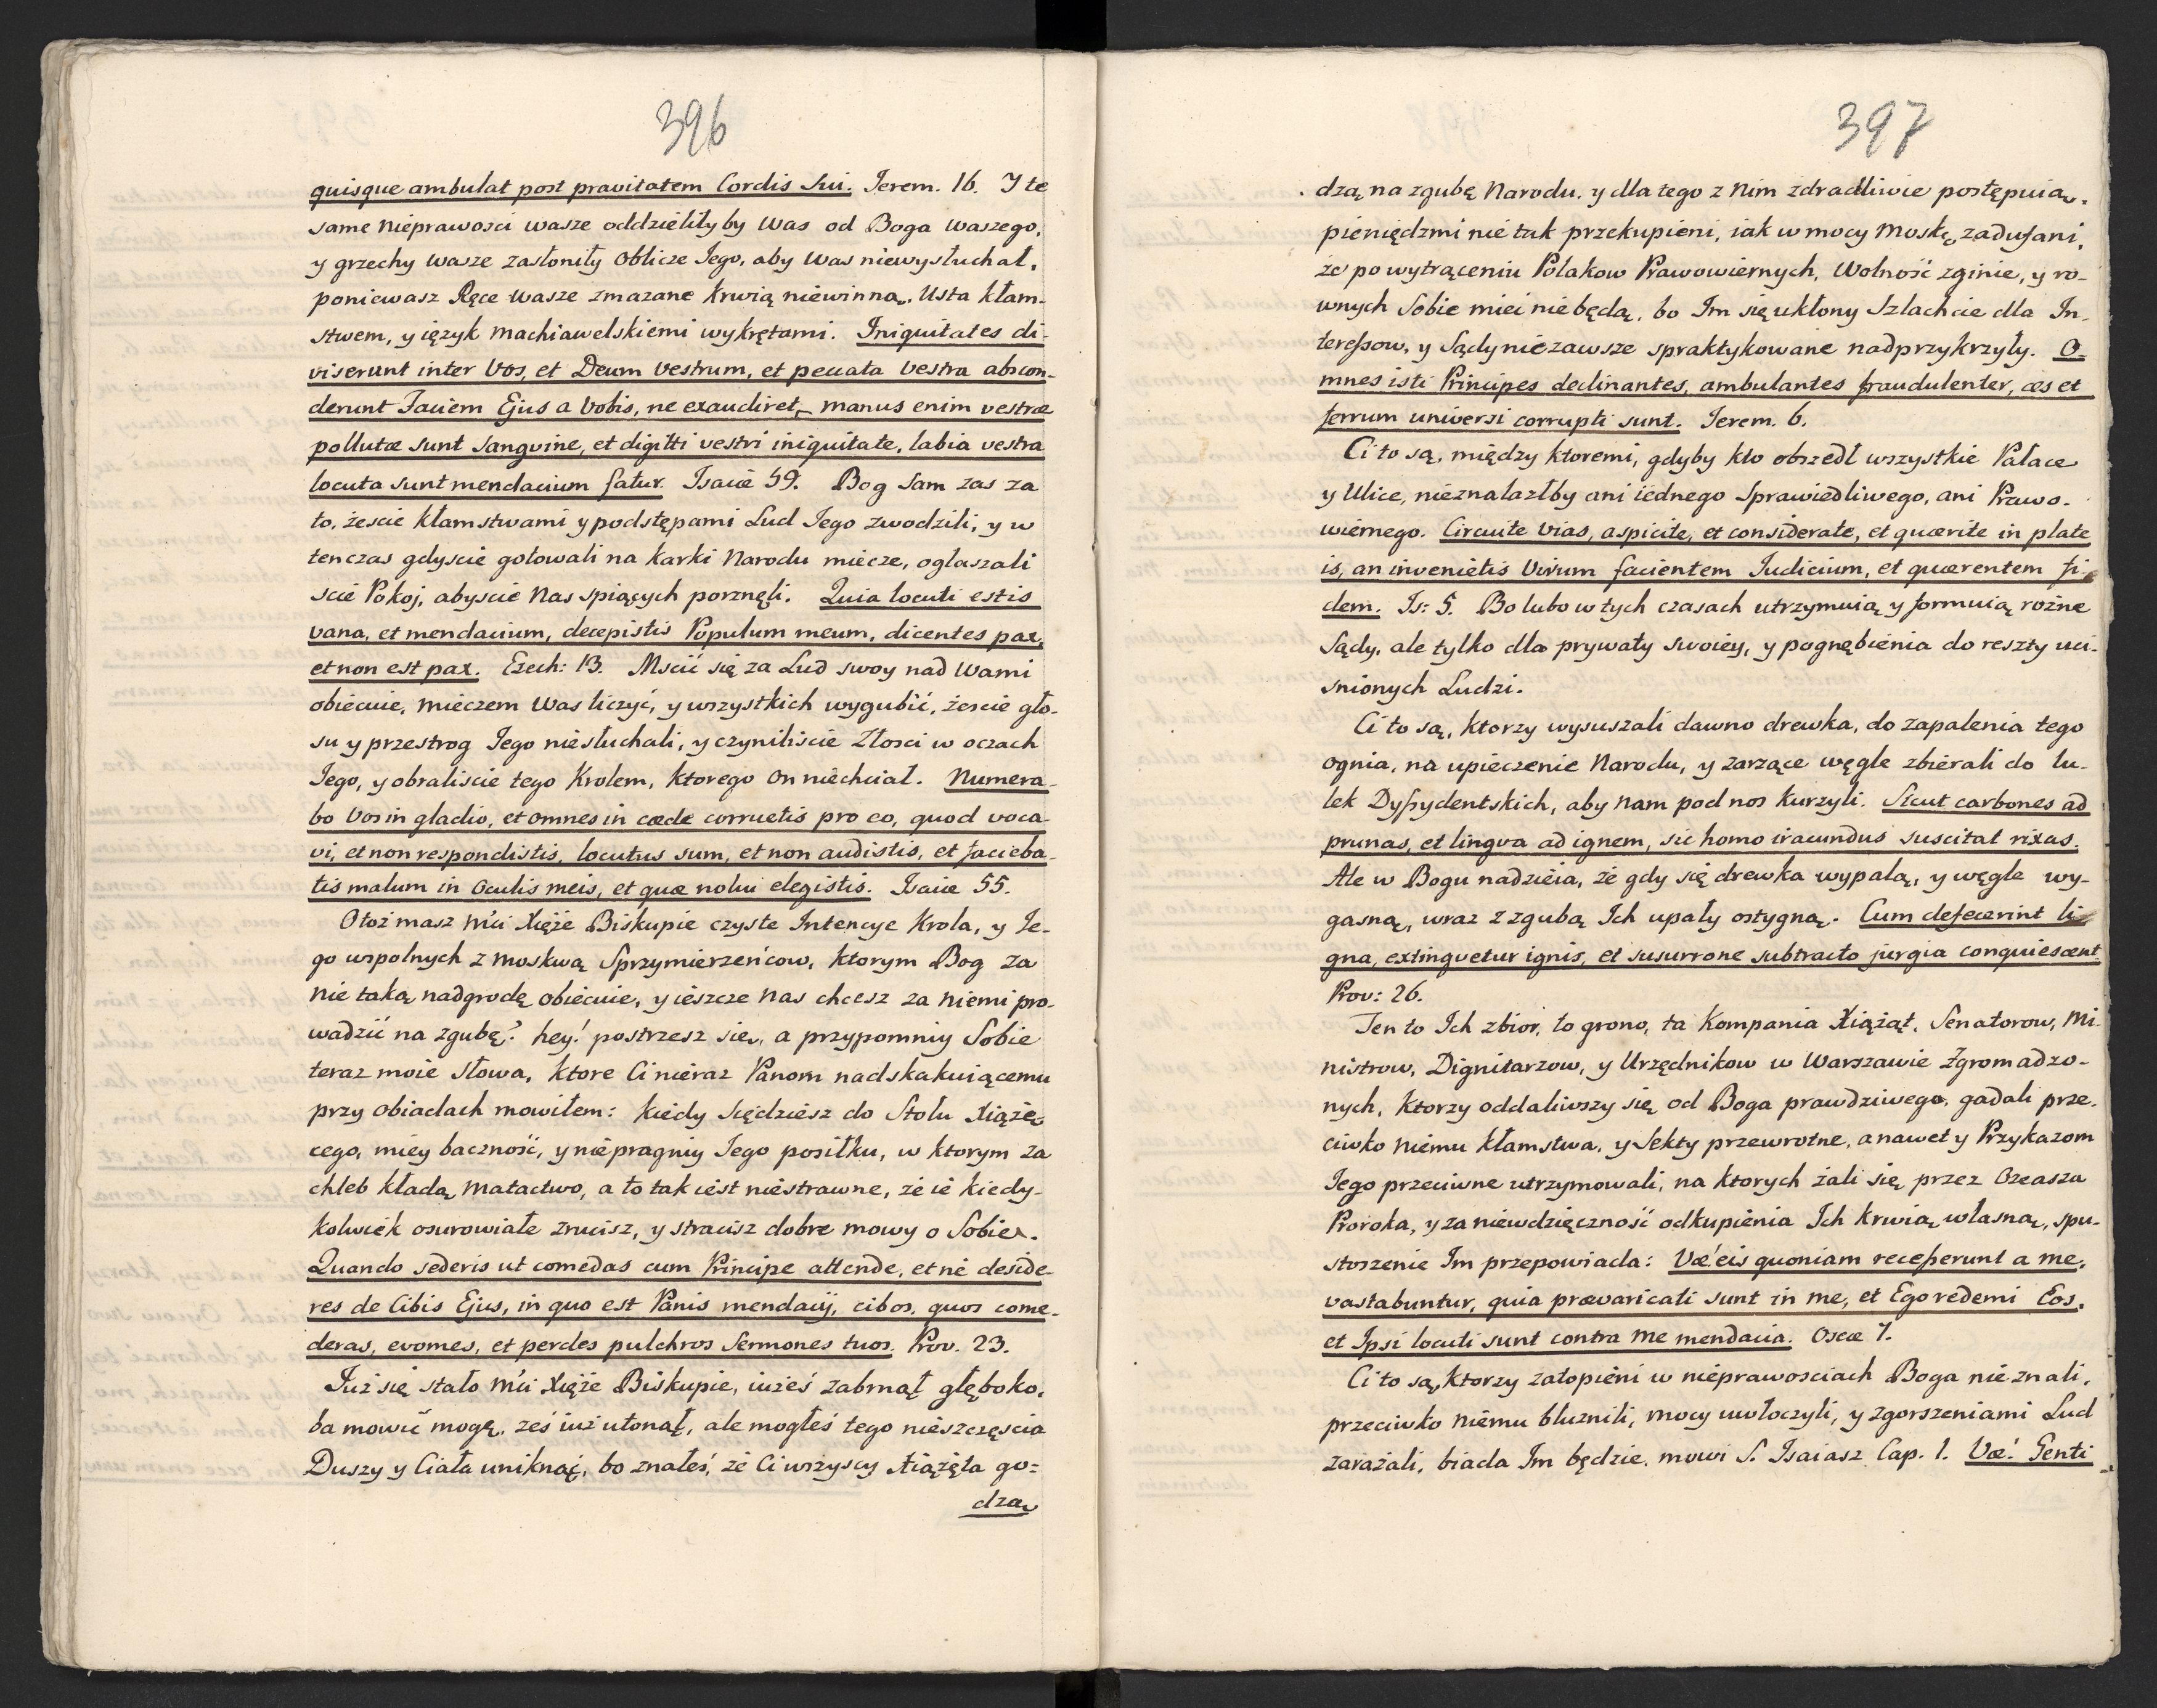 396
quisque ambulat post pravitatem Cordis Sui. Jerem. 16. Y te
same nieprawosci wasze oddzieliły by Was od Boga waszego,
y grzechy wasze zasłoniły Oblicze Jego, aby Was niewysłuchał,
poniewasz Ręce wasze zmazane krwią niewinną, Usta kłam-
stwem, y ięzyk machiawelskiemi wykrętami. Iniquitates di-
viserunt inter Vos, et Deum vestrum, et peccata vestra abscon-
derunt Faciem Ejus a Vobis, ne exaudiret, manus enim vestræ
pollutæ sunt Sangvine, et digitti vestri iniquitate, labia vestra
locuta sunt mendacium fatur. Isaiæ 59. Bog Sam zas za
to, żescie kłamstwami y podstępami Lud Jego zwodzili, y w
tenczas gdyscie gotowali na karki Narodu miecze, ogłaszali
scie Pokoj, abyscie Nas spiących porznęli. Quia locuti estis
vana, et mendacium, decepistis Populum meum, dicentes pax,
et non est pax. Ezech: 13. Mscić się za Lud swoy nad Wami
obiecuie, mieczem Was liczyć, y wszystkich wygubić, żescie gło-
su y przestrog Jego niesłuchali, y czyniliscie Złosci w oczach
Jego, y obraliscie tego Krolem, ktorego On niechciał. Numera-
bo Vos in gladio, et omnes in cæde corruetis pro eo, quod voca-
vi, et non respondistis, locutus sum, et non audistis, et facieba-
tis malum in Oculis meis, et quæ nolui elegistis. Isaiæ 55.
Otoż masz M'ci Xięże Biskupie czyste Intencye Krola, y Je-
go wspolnych z Moskwą Sprzymierzeńcow, ktorym Bog za
nie taką nadgrodę obiecuie, y ieszcze nas chcesz za niemi pro-
wadzić na zgubę? hey! postrzesz się, a przypomniy Sobie
teraz moie słowa, ktore Ci nieraz Panom nadskakuiącemu
przy obiadach mowiłem: kiedy siędziesz do Stołu Xiążę-
cego, miey baczność, y niepragniy Jego posiłku, w ktorym za
chleb kładą matactwo, a to tak iest niestrawne, że ie kiedy-
kolwiek osurowiałe zrucisz, y stracisz dobre mowy o Sobie.
Quando sederis ut comedas cum Principe attende, et ne deside-
res de Cibis Ejus, in quo est Panis mendacij, cibos, quos come-
deras, evomes, et perdes pulchros Sermones tuos. Prov. 23.
Już się stało M'ci Xięże Biskupie, iużeś zabrnął głęboko,
ba mowić mogę, żeś iuż utonął, ale mogłeś tego nieszczęscia
Duszy y Ciała uniknąć, bo znałeś, że Ci wszyscy Xiążęta go=
dzą
397
dzą na zgubę Narodu, y dla tego z Nim zdradliwie postępuią,
pieniędzmi nie tak przekupieni, iak w mocy Moskę zadufani,
że po wytrąceniu Polakow Prawowiernych, Wolność zginie, y ro-
wnych Sobie mieć niebędą, bo Im się ukłony Szlachcie dla In-
teressow, y Sądy niezawsze spraktykowane nadprzykrzyły. O-
mnes isti Principes declinantes, ambulantes fraudulenter, æs et
ferrum universi corrupti sunt. Jerem. 6.
Ci to są, między ktoremi, gdyby kto obszedł wszystkie Pałace
y Ulice, nieznalazłby ani iednego Sprawiedliwego, ani Prawo-
wiernego. Circuite Vias, aspicite, et considerate, et quærite in plate
is, an invenietis Virum facientem Iudicium, et quærentem fi-
dem. Is: 5. Bo lubo w tych czasach utrzymuią y formuią rożne
Sądy, ale tylko dla prywaty swoiey, y pognębienia do reszty uci-
snionych Ludzi.
Ci to są, ktorzy wysuszali dawno drewka, do zapalenia tego
ognia, na upieczenie Narodu, y zarzące węgle zbierali do lu-
lek Dyssydentskich, aby nam pod nos kurzyli. Sicut carbones ad
prunas, et lingva ad ignem, sic homo iracundus suscitat rixas.
Ale w Bogu nadzieia, że gdy się drewka wypalą, y węgle wy-
gasną, wraz z zgubą Ich upały ostygną. Cum defecerint li-
gna, extinguetur ignis, et susurrone subtracto jurgia conquiescent.
Prov: 26.
Ten to Ich zbior, to grono, ta Kompania Xiążąt, Senatorow, Mi-
nistrow, Dignitarzow, y Urzędnikow w Warszawie Zgromadzo-
nych, ktorzy oddaliwszy się od Boga prawdziwego, gadali prze-
ciwko Niemu kłamstwa, y Sekty przewrotne, a nawet y Przykazom
Jego przeciwne utrzymowali, na ktorych żali się przez Ozeasza
Proroka, y za niewdzięczność odkupienia Ich krwią własną, spu-
stoszenie Im przepowiada: Væ! eis quoniam recesserunt a me,
vastabuntur, quia prævaricati sunt in me, et Ego redemi Eos,
et Ipsi locuti sunt contra me mendacia. Oseæ 7.
Ci to są, ktorzy zatopieni w nieprawosciach Boga nie znali,
przeciwko Niemu bluznili, mocy uwłoczyli, y zgorszeniami Lud
zarażali, biada Im będzie, mowi S. Isaiasz Cap. 1. Væ! Genti